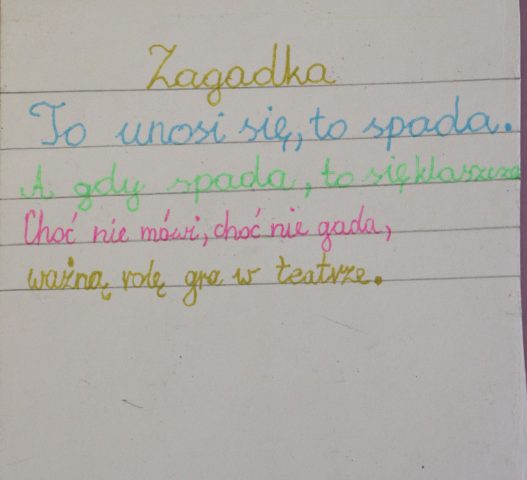 Zagadka
To unosi się, to spada.
A gdy spada, to się klaszcze
Choć nie mówi, choć nie gada,
ważną rolę gra w teatrze.